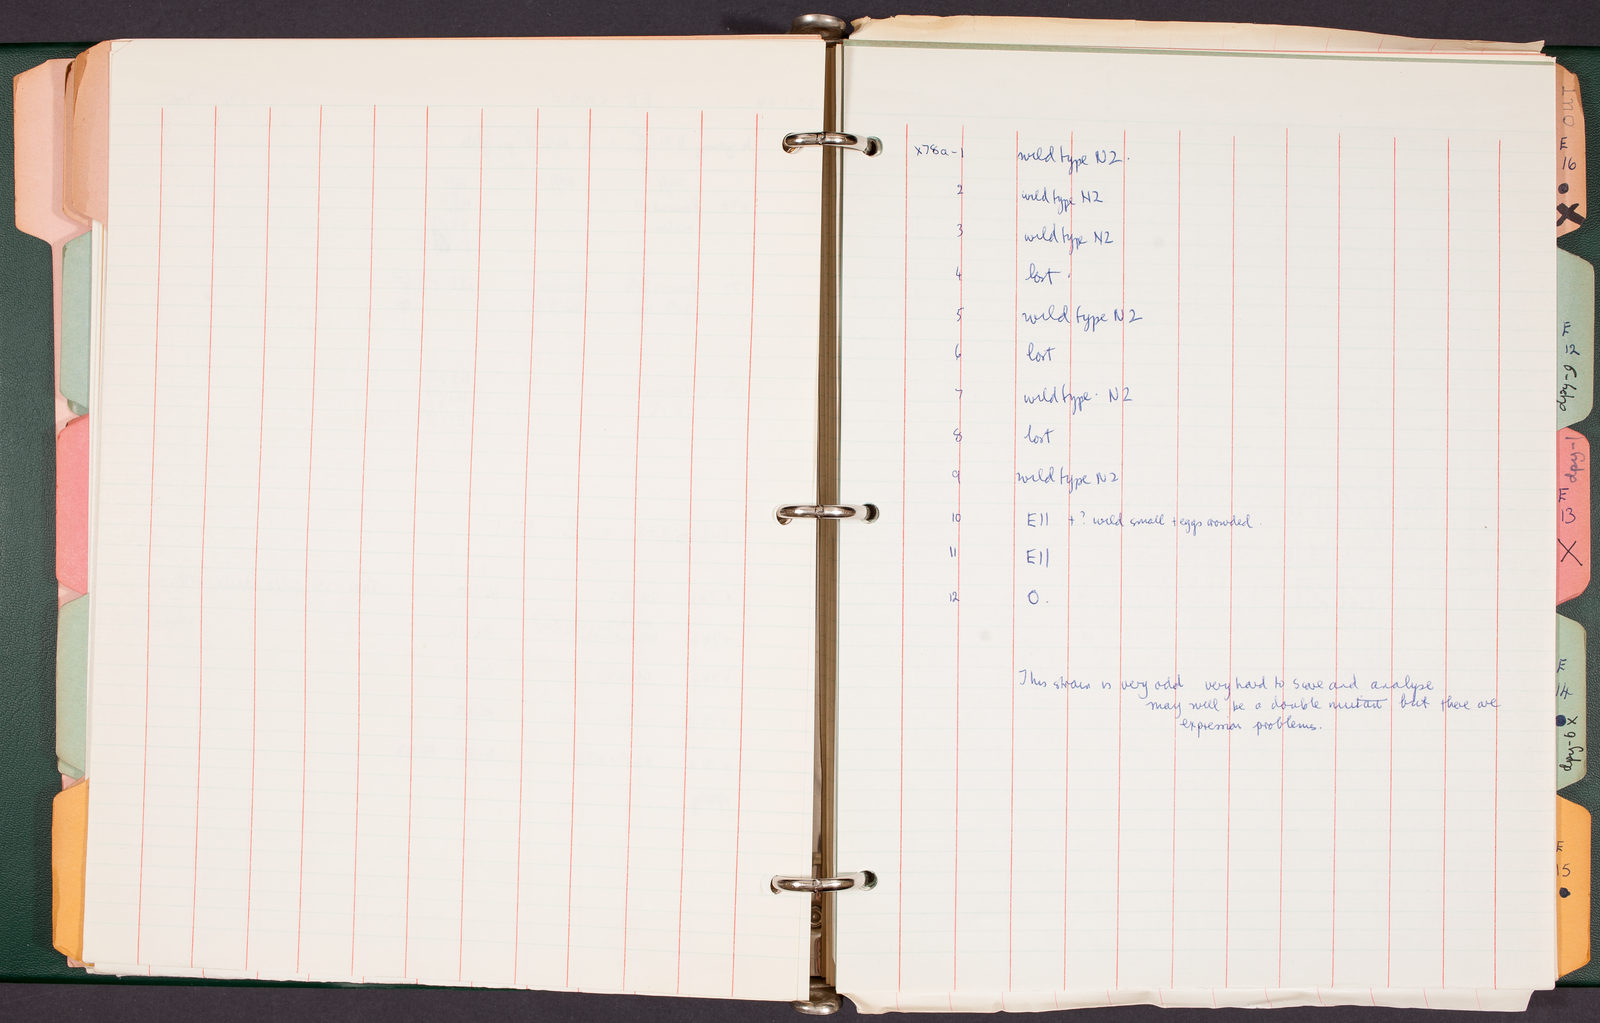 x78a-1 wild type N2.
2 wild type N2
3 wild type N2
4 lost.
5 wild type N2
6 lost
7 wild type. N2
8 lost
9 wild type N2
10 E11 + ? wild small + eggs crowded.
11 E11
12 0.
This strain is very odd very hard to score and analyse
may well be a double mutant but there are
expression problems.
OUT
E
16
X
E
12
dpy-9
dpy-1
E
13
X
E
14
dpy-6 X
E
15